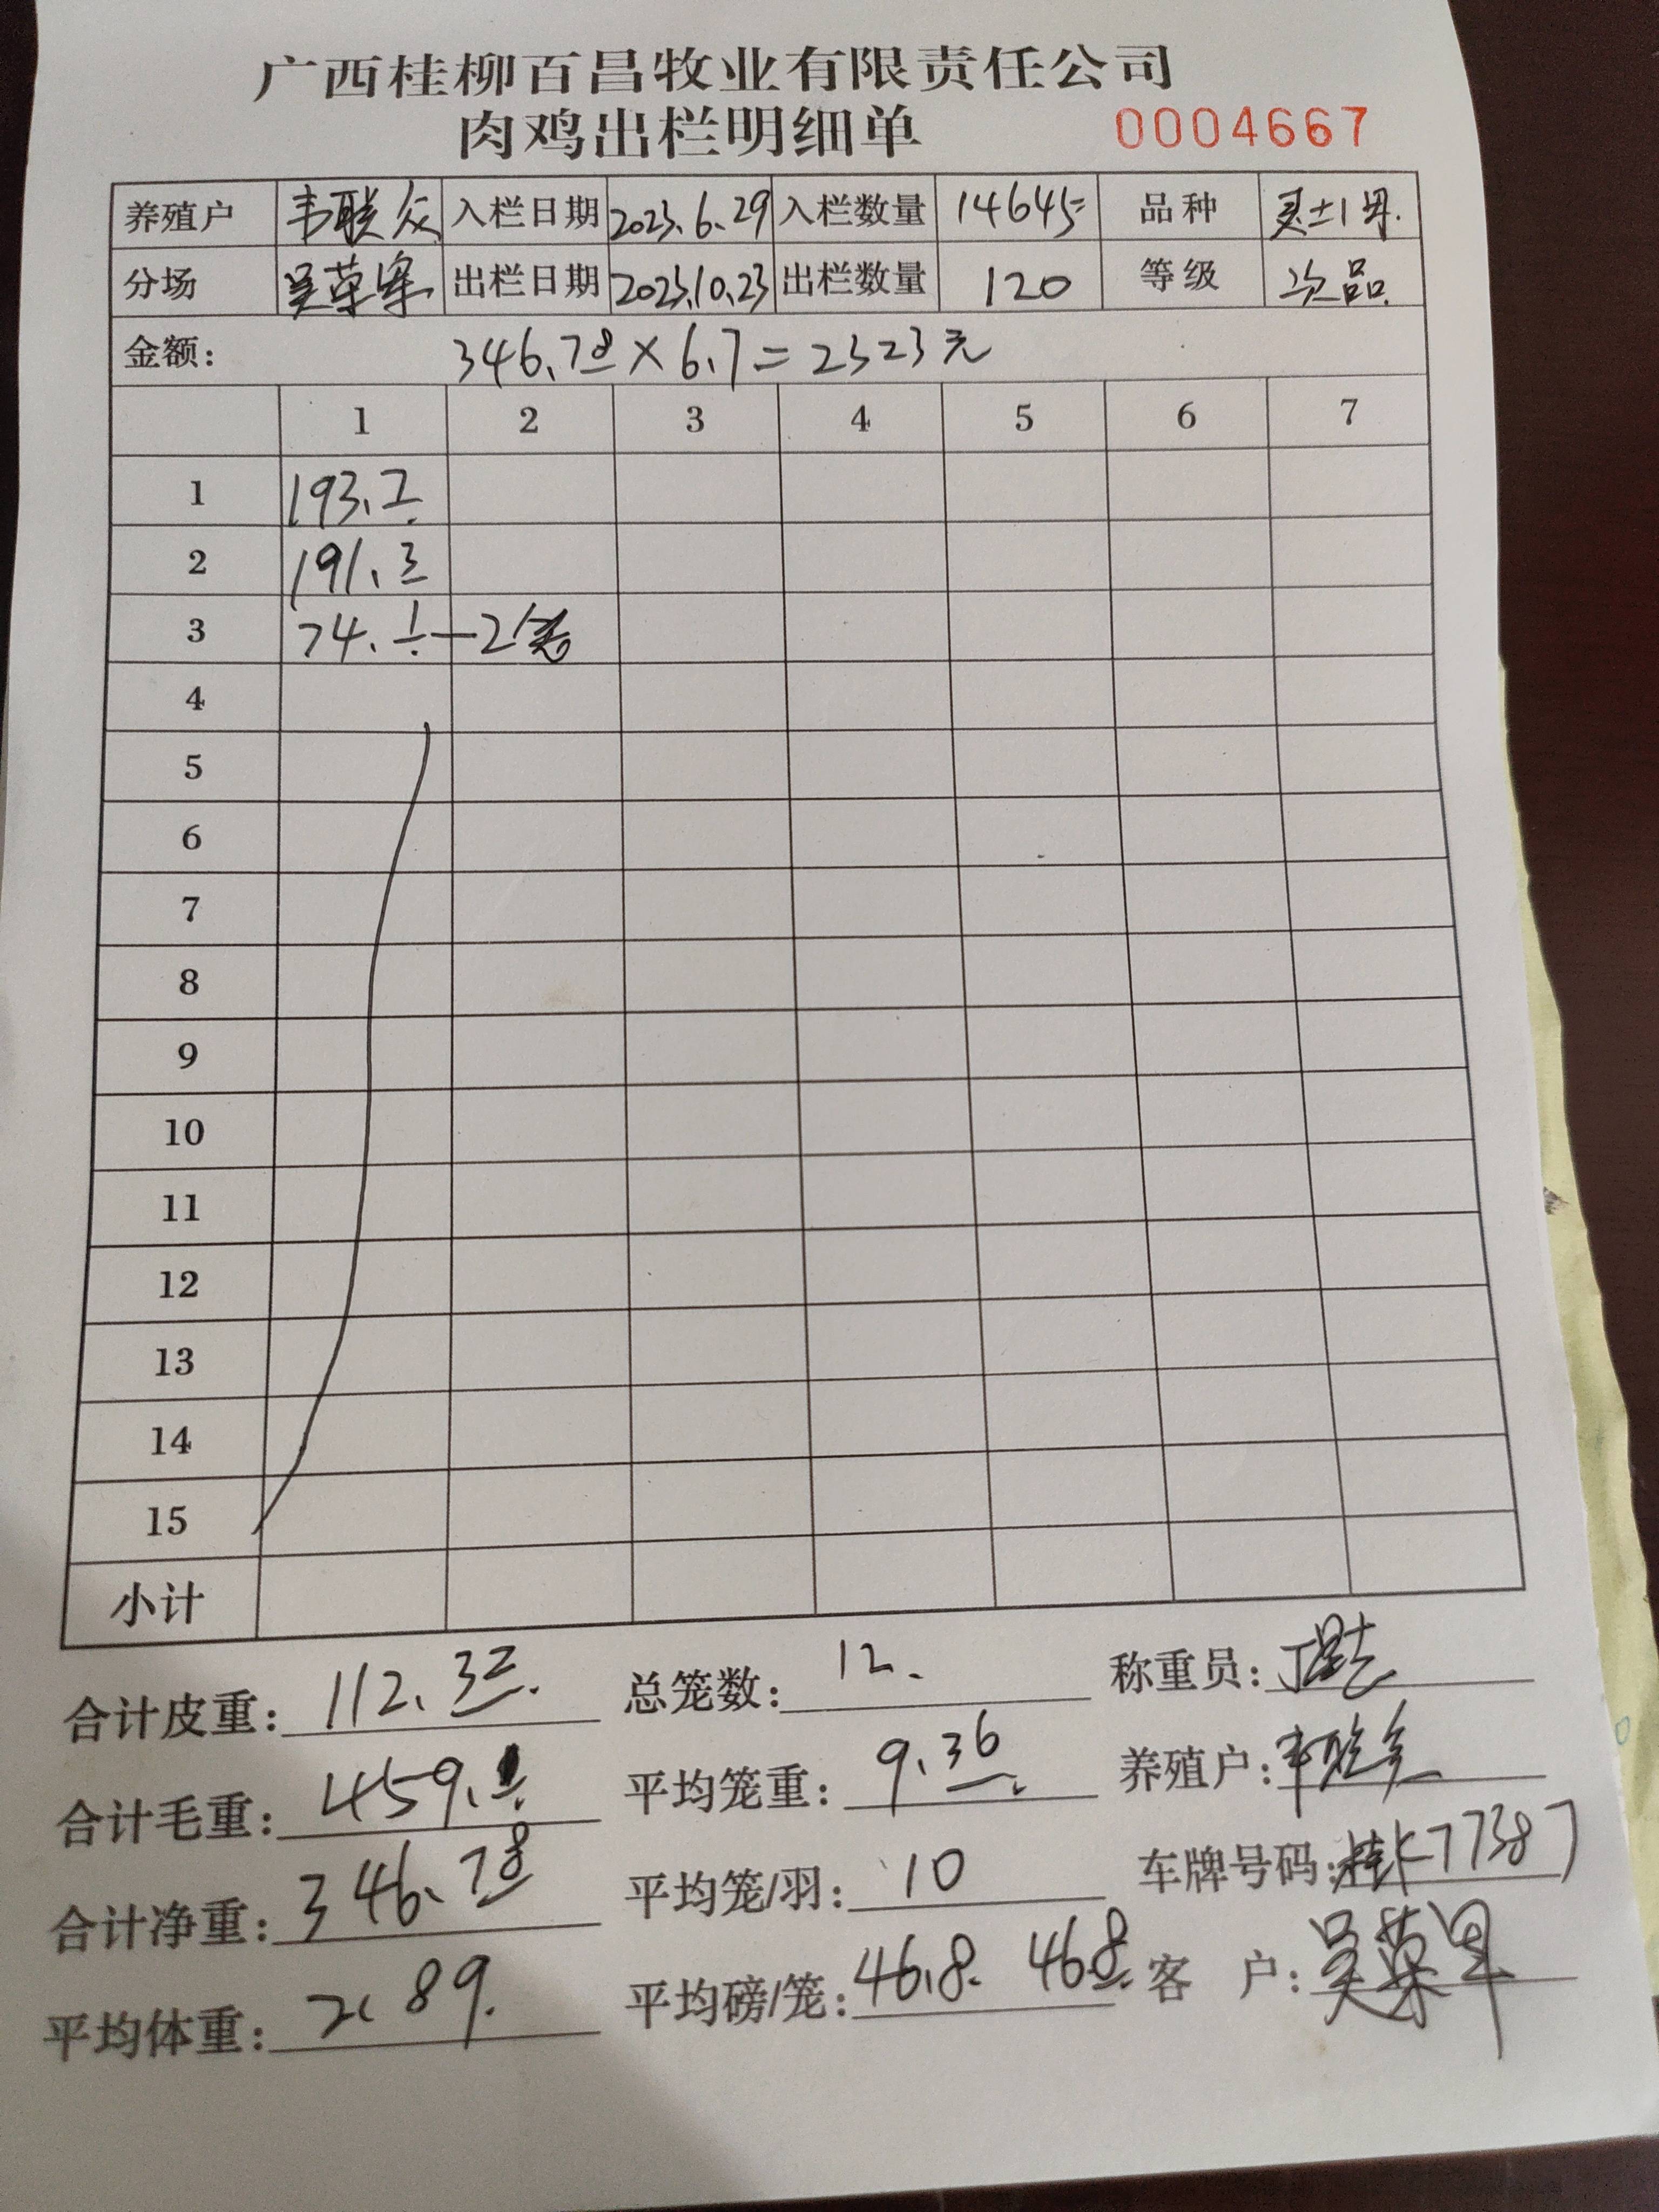 广西桂柳百昌牧业有限责任公司
肉鸡出栏明细单 0004667
养殖户 韦联众 入栏日期 2023.6.29 入栏数量 14645 品种 灵土1号.
分场 出栏日期 2023.10.23 出栏数量 120 等级 次品.
金额: 346.78×6.7=2323元
1 2 3 4 5 6 7
1 193.7
2 191.3
3 74.1—2笼
4
5
6
7
8
9
10
11
12
13
14
15
小计
合计皮重: 112.32. 总笼数: 12. 称重员:
合计毛重: 459.1. 平均笼重: 9.36. 养殖户: 韦联众
合计净重: 346.78 平均笼/羽: 10 车牌号码: 桂K77387
平均体重: 2.89. 平均磅/笼: 46.8. 46.8. 客 户: 吴荣军